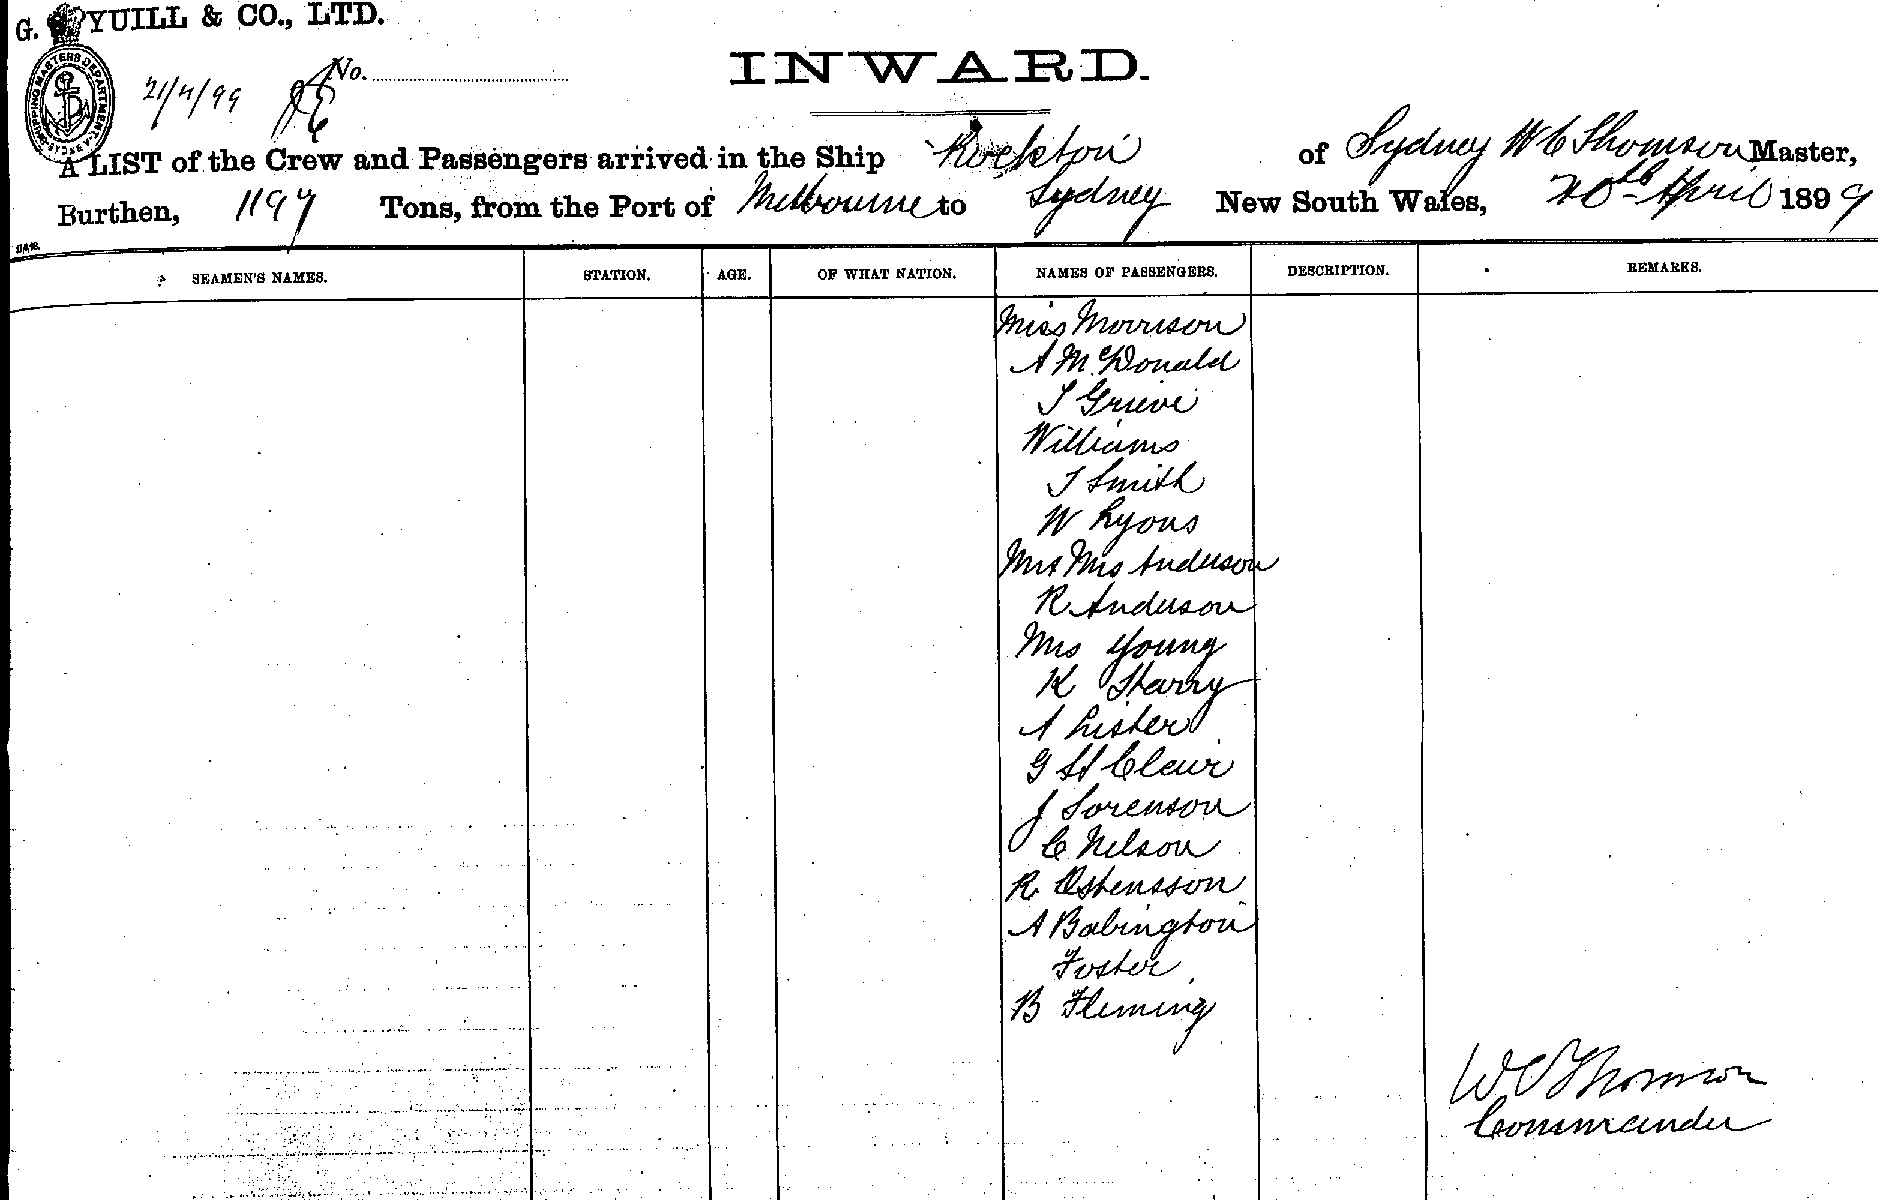 G. S. YUILL & CO., LTD.
INWARD.
No.
SHIPPING MASTERS DEPARTMENT
21/4/99
A LIST of the Crew and Passengers arrived in the Ship Rockton of Sydney W C Thomson Master,
Burthen, 1197 Tons, from the Port of Melbourne to Sydney New South Wales, 20th April 1899
SEAMEN'S NAMES. STATION. AGE. OF WHAT NATION. NAMES OF PASSENGERS. DESCRIPTION. REMARKS.
Miss Morrison
A McDonald
T Grieve
Williams
T Smith
W Lyons
Mr & Mrs Anderson
R Anderson
Mrs Young
K Starry
A Lister
G St Clair
J Sorenson
C Nelson
R Ostensson
A Babington
Foster
B Fleming
W C Thomson
Commander